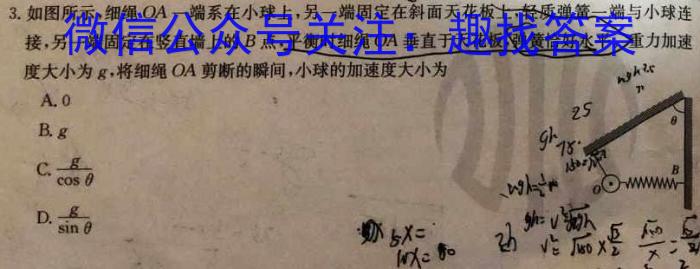 3. 如图所示,细绳OA一端系在小球上,另一端固定在斜面天花板上,轻质弹簧一端与小球连
接,另一端固定在竖直墙上的B点,平衡时细绳OA垂直于天花板,弹簧恰好水平,重力加速
微信公众号关注:趣找答案
度大小为g,将细绳OA剪断的瞬间,小球的加速度大小为
A. 0
B. g
C. g/cos θ
D. g/sin θ
θ
25
75°
O
B
5x=
10x=